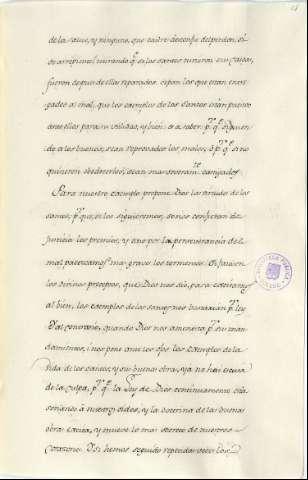 de la salud, y ninguno, que caüre desconfie del perdon, si
de arrepiente mirando q.e los santos tuvieron sus caidas,
fueron despues de ellas reparados. sepan los que estan encar
gados al mal, que los exemplos de los Santos estan puestos
ante ellos para su utilidad, y bien: es a saber: p.a q.e siguien
do a los buenos, sean reprovados los malos, ò p.a q.e si no
quisieren obedecerlos, sean mas castigados.
Para nuestro exemplo propone Dios las virtudes de los
santos, p.a que, si los siguieremos, se nos confieran de
justicia los premios, y sino por la perseverancia del
mal padezcamos mas graves los tormentos. Si faltasen
los divinos preceptos, que Dios nos dió, para exitarnos
al bien, los exemplos de los santos nos bastarian p.r ley
Y al contrario, quando Dios nos amonesta p.r sus man
damientos, i nos pone ante los ojos los exemplos de la
vida de los santos, y sus buenas obras, ya no hai escusa
de la culpa, p.r q.e la Ley de Dios continuamente està
sonando à nuestros oidos, y la doctrina de las buenas
obras excita, y mueve lo mas secreto de nuestros
corazones. Si hemos seguido repetidas veces los